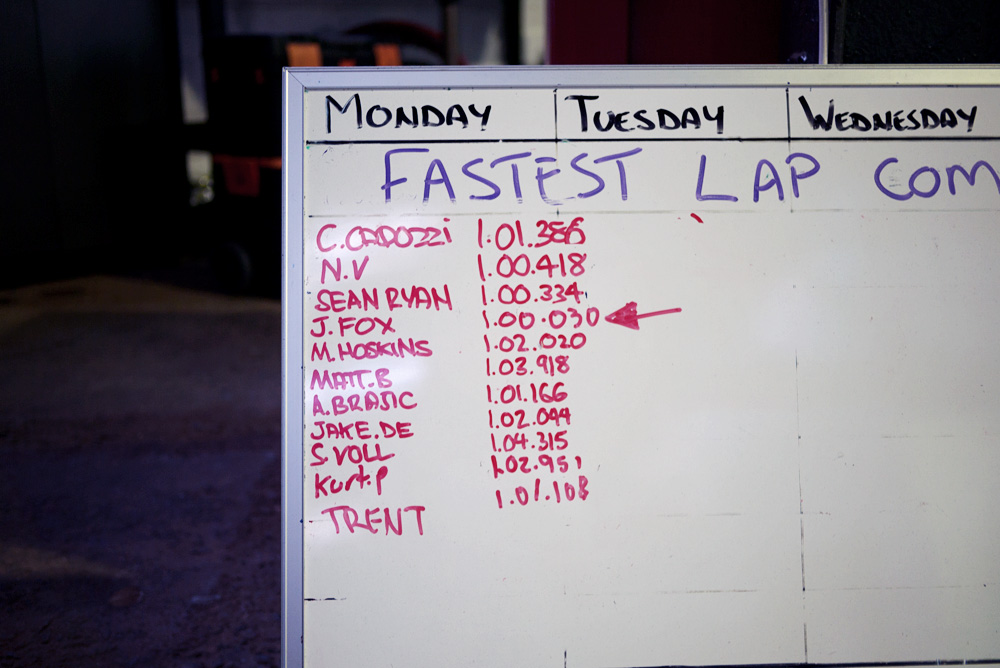 MONDAY TUESDAY WEDNESDAY
FASTEST LAP COM
C. CAPOZZI 1.01.386
N.V 1.00.418
SEAN RYAN 1.00.334
J. FOX 1.00.030
M. HOSKINS 1.02.020
MATT.B 1.03.918
A. BRAJIC 1.01.166
JAKE.DE 1.02.094
S. VOLL 1.04.315
Kurt.P 1.02.951
TRENT 1.01.108